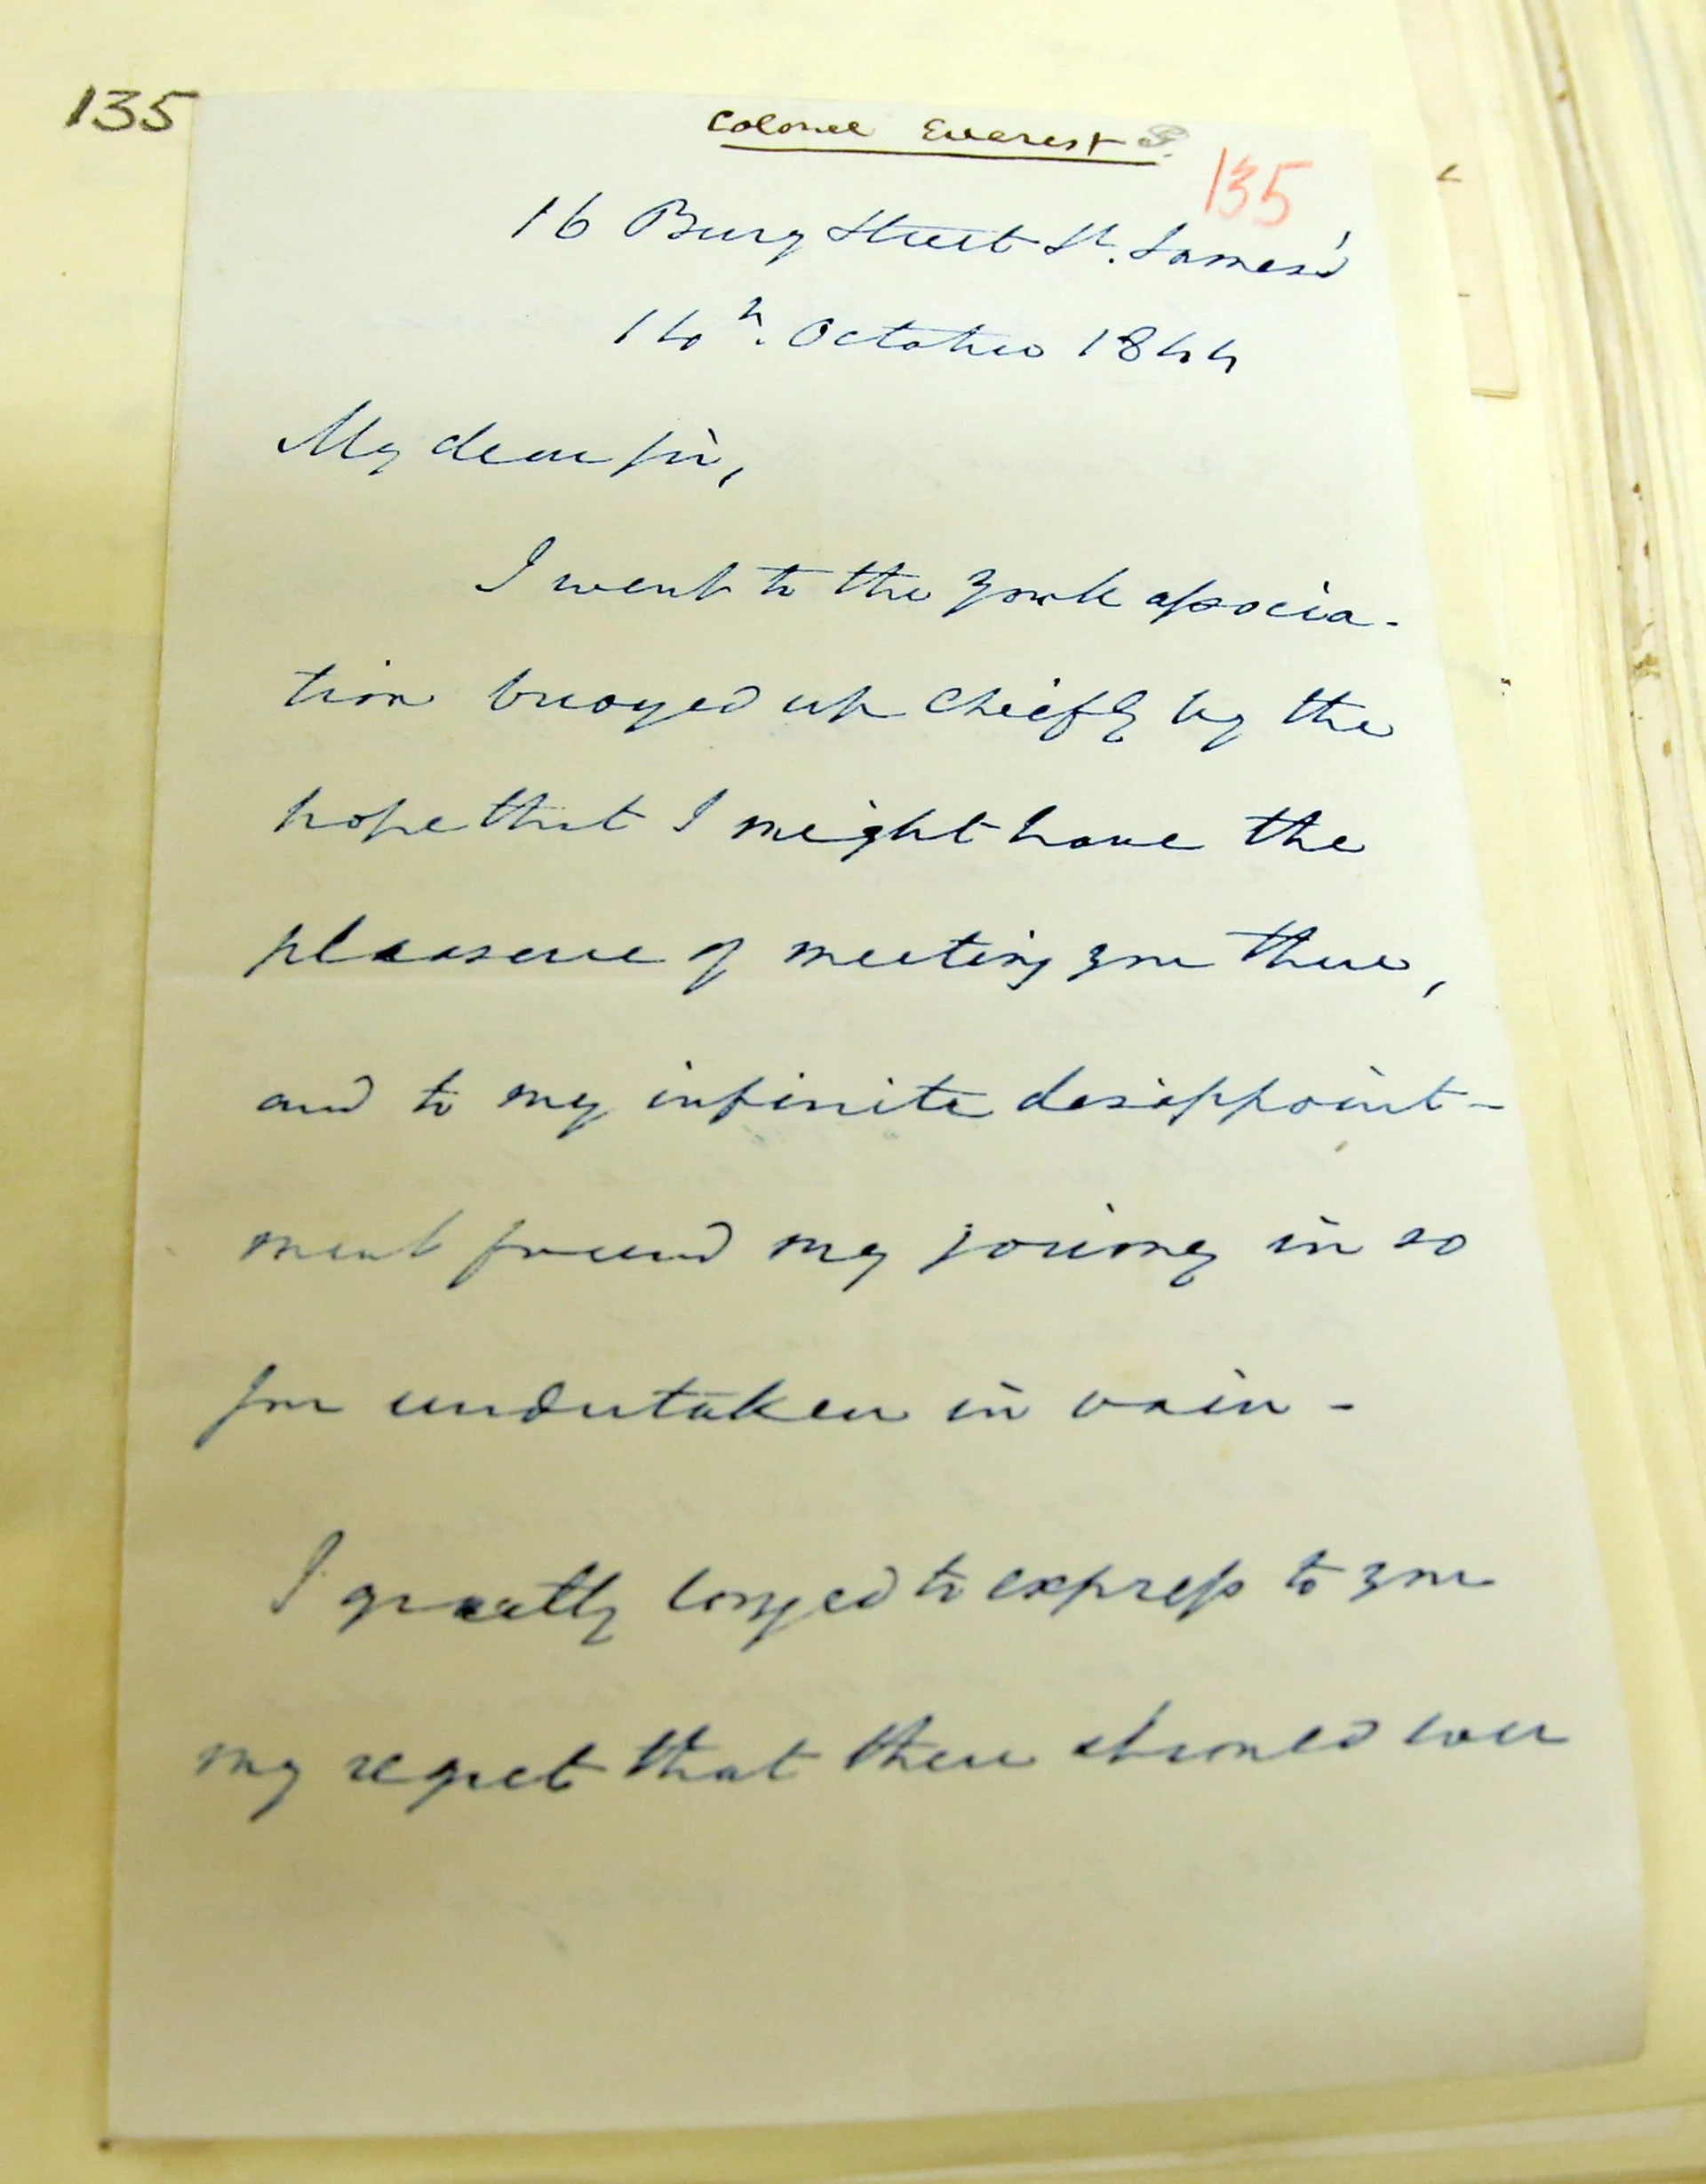 135
Colonel Everest
135
16 Bury Street St. James's
14th. October 1844
My dear Sir,
I went to the York associa-
tion buoyed up chiefly by the
hope that I might have the
pleasure of meeting you there,
and to my infinite disappoint-
ment found my journey in so
far undertaken in vain -
I greatly longed to express to you
my regret that there should ever